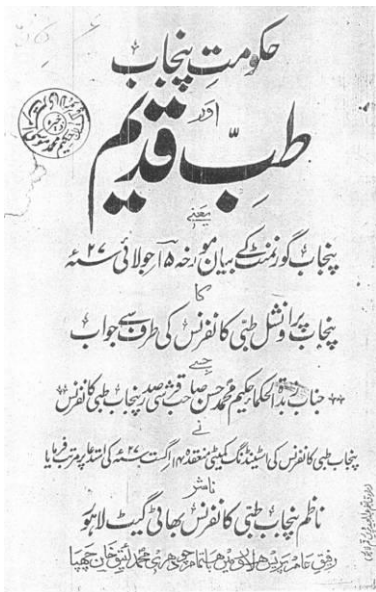 حکومتِ پنجاب
اور
طبِّ قدیم
یعنے
پنجاب گورنمنٹ کے بیان مورخہ ۱۵ جولائی ۲۷ سنہء
کا
پنجاب پراونشل طبی کانفرنس کی طرف سے جواب
جسے
جناب زبدۃ الحکما حکیم محمد حسن صاحب قرشی صدر پنجاب طبی کانفرنس
نے
پنجاب طبی کانفرنس کی اسٹینڈنگ کمیٹی منعقدہ ۱۴ اگست ۲۷ سنہء کی استدعا پر مرتب فرمایا
ناشر
ناظم پنجاب طبی کانفرنس بھاٹی گیٹ لاہور
رفیق عام پریس لاہور میں باہتمام چودھری محمد لئیق خان چھپا